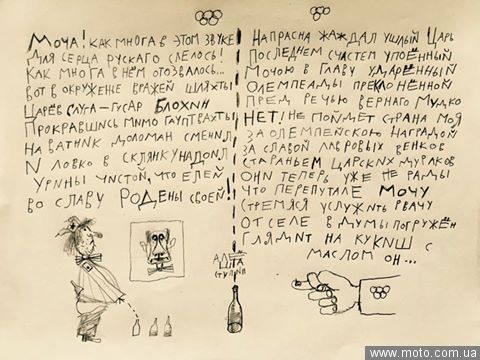 Моча! как многа в этом звуке
Для серца рускаго слелось!
Как многа в нём отозвалось...
вот в окруженье вражей шляхты
Царёв слуга-гусар Блохин
Прокравшись мимо гауптвахты
На ватник доломан сменил
И ловко в склянку надоил
Урины чистой, что елей
во славу РОДены своей!
Напрасна жаждал ушлый Царь
Последнем счастем упоённый
Мочою в главу ударенный
Олемпеады преклонённой
Пред речью вернаго Мудко
НЕТ! не пойдет страна моя
За олемпейскою наградой
За славой лавровых венков
Стараньем царских дураков
Они теперь уже не рады
Что перепутале Мочу
Стремяся услужить рвачу
Отселе в думы погружён
Глядит на кукиш с
маслом он...
www.moto.com.ua